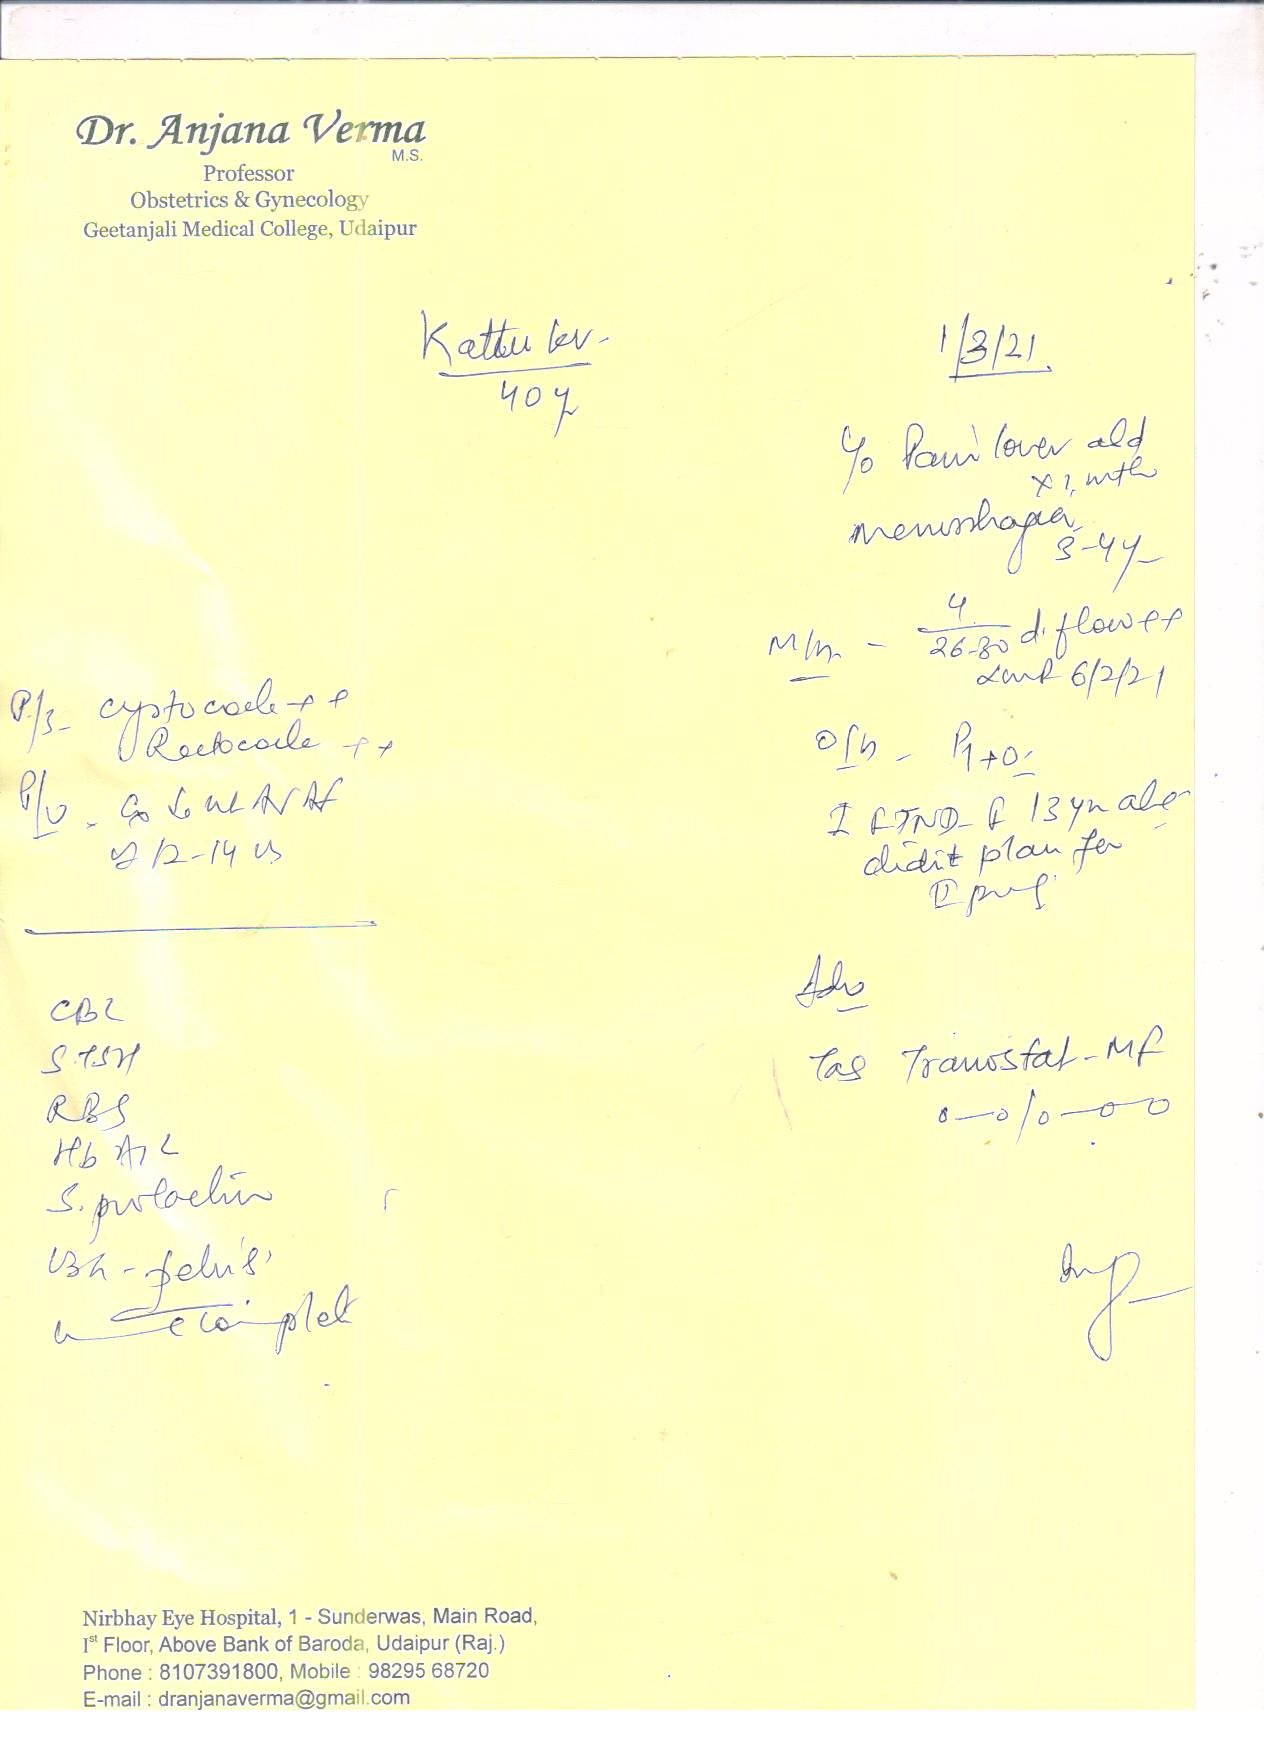 Dr. Anjana Verma
M.S.
Professor
Obstetrics & Gynecology
Geetanjali Medical College, Udaipur
Kattu
40y
1/3/21
c/o Pain lower abd
x 1 mth
menorrhagia
3-4y
M/h - 4/26-30 d. flow ++
LMP 6/2/21
O/h - P1+0
I FTND - 13 yrs
didit plan for
II preg
P/S - cystocoele ++
Rectocoele ++
P/V - Cx ut AV AF
12-14 
CBC
S.TSH
RBS
HbA1C
S. prolactin
pelvis
Urine complet
Adv
Tab Tranostat-MF
Nirbhay Eye Hospital, 1 - Sunderwas, Main Road,
Ist Floor, Above Bank of Baroda, Udaipur (Raj.)
Phone : 8107391800, Mobile : 98295 68720
E-mail : dranjanaverma@gmail.com